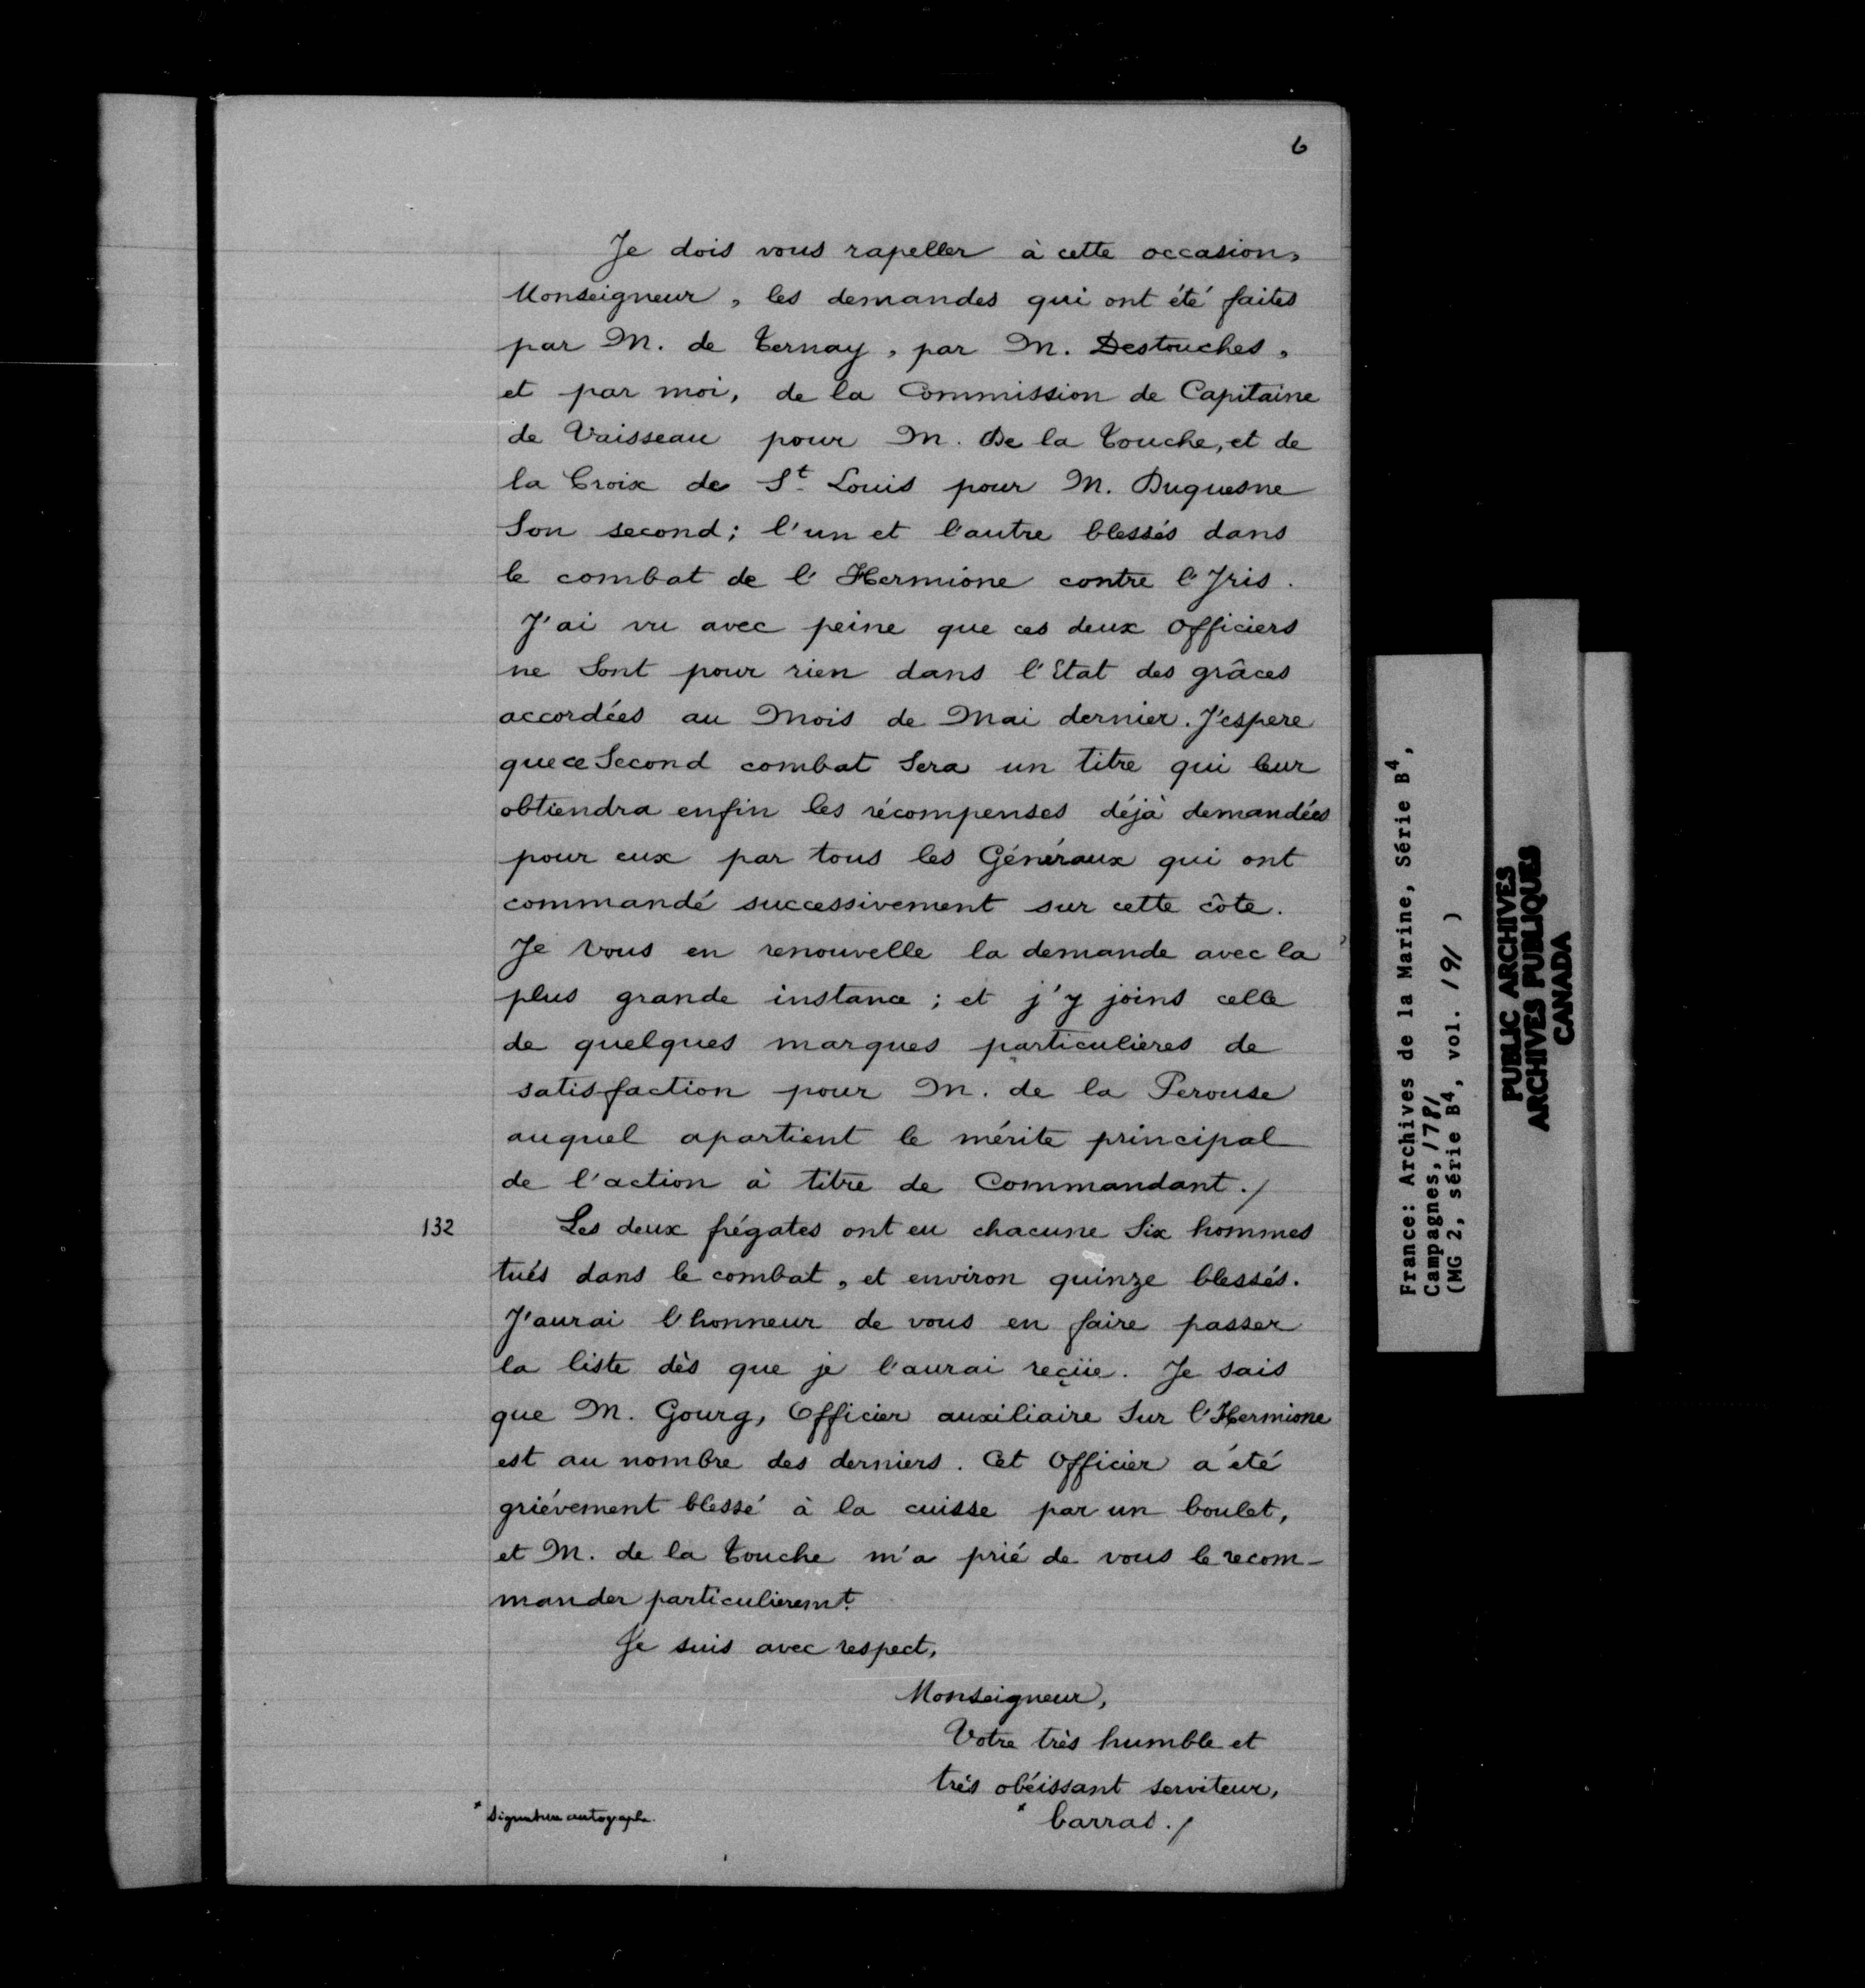 6
Je dois vous rapeller à cette occasion,
Monseigneur, les demandes qui ont été faites
par M. de Ternay, par M. Destouches,
et par moi, de la Commission de Capitaine
de Vaisseau pour M. De la Touche, et de
la Croix de St Louis pour M. Duquesne
Son second; l'un et l'autre blessés dans
le combat de l'Hermione contre l'Iris.
J'ai vu avec peine que ces deux Officiers
ne Sont pour rien dans l'Etat des grâces
accordées au Mois de Mai dernier. J'espere
que ce Second combat Sera un titre qui leur
obtiendra enfin les récompenses déjà demandées
pour eux par tous les Généraux qui ont
commandé successivement sur cette côte.
Je Vous en renouvelle la demande avec la
plus grande instance; et j'y joins celle
de quelques marques particulieres de
satisfaction pour M. de la Perouse
auquel apartient le mérite principal
de l'action à titre de Commandant./
132
Les deux frégates ont eu chacune Six hommes
tués dans le combat, et environ quinze blessés.
J'aurai l'honneur de vous en faire passer
la liste dès que je l'aurai reçüe. Je sais
que M. Gourg, Officier auxiliaire Sur l'Hermione
est au nombre des derniers. Cet Officier a été
griévement blessé à la cuisse par un boulet,
et M. de la Touche m'a prié de vous le recom-
mander particulieremt.
Je suis avec respect,
Monseigneur,
Votre très humble et
très obéissant serviteur,
* barras./
* Signature autographe.
France: Archives de la Marine, Série B4,
Campagnes, 1781
(MG 2, série B4, vol. 191 )
PUBLIC ARCHIVES
ARCHIVES PUBLIQUES
CANADA